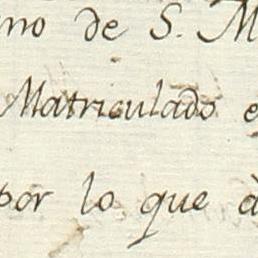 no de S. M
Matriculado e
por lo que à